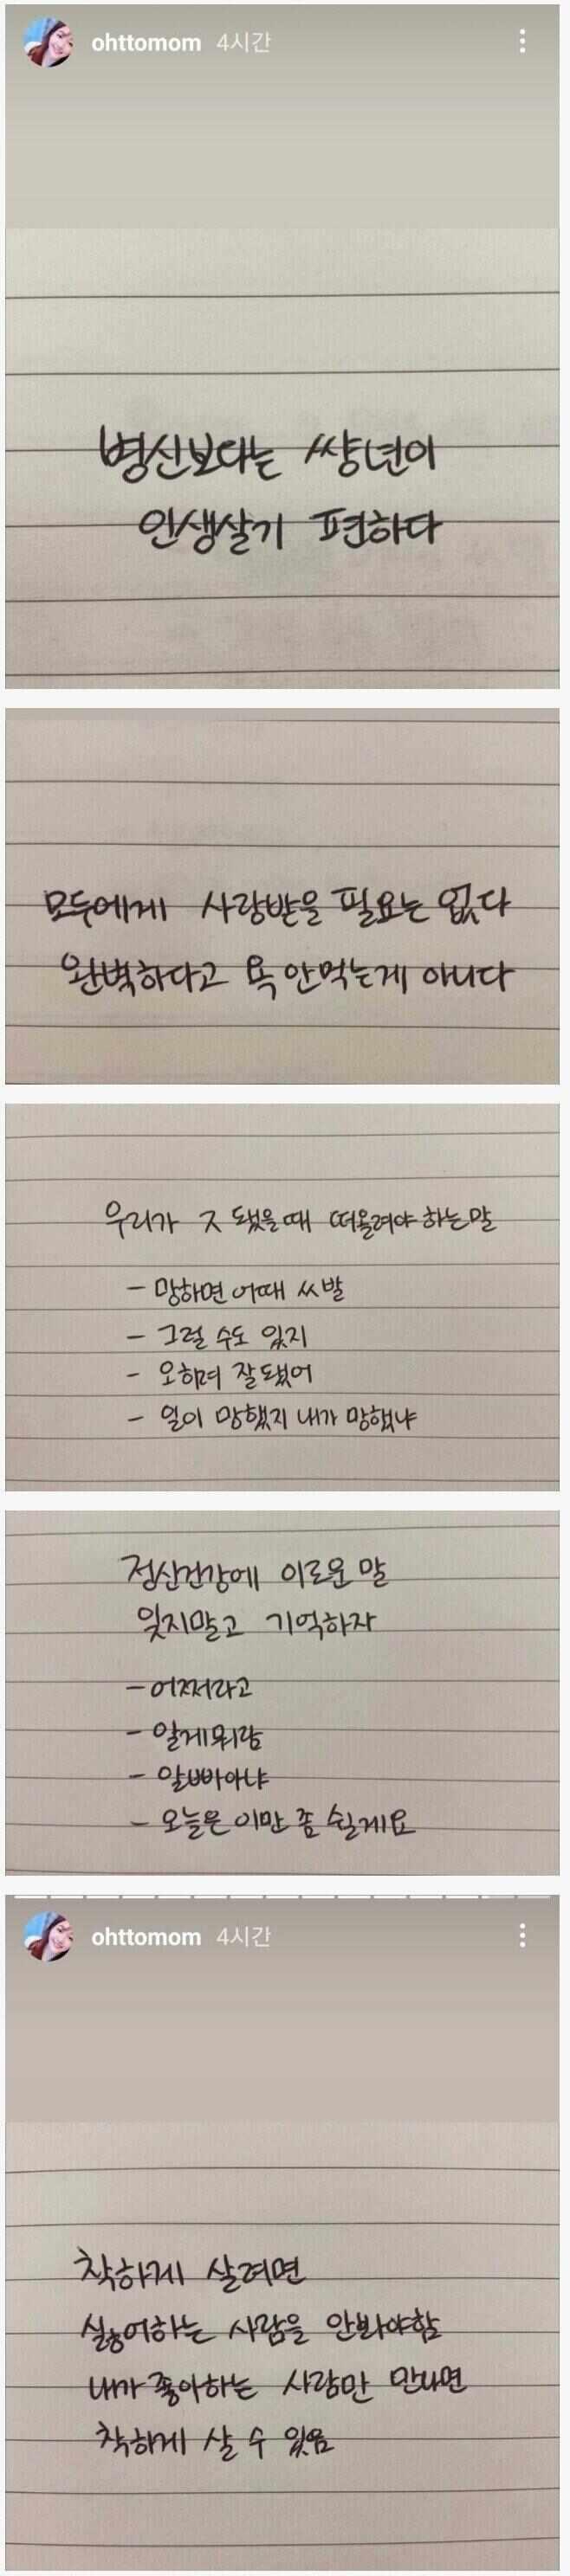 ohttomom 4시간
병신보다는 쌍년이
인생살기 편하다
모두에게 사랑받을 필요는 없다
완벽하다고 욕 안먹는게 아니다
우리가 ㅈ 됐을때 떠올려야 하는 말
- 망하면 어때 씨발
- 그럴 수도 있지
- 오히려 잘됐어
- 일이 망했지 내가 망했냐
정신건강에 이로운 말
잊지말고 기억하자
- 어쩌라고
- 알게뭐람
- 알빠아냐
- 오늘은 이만 좀 쉴게요
ohttomom 4시간
착하게 살려면
싫어하는 사람을 안봐야함
내가 좋아하는 사람만 만나면
착하게 살 수 있음